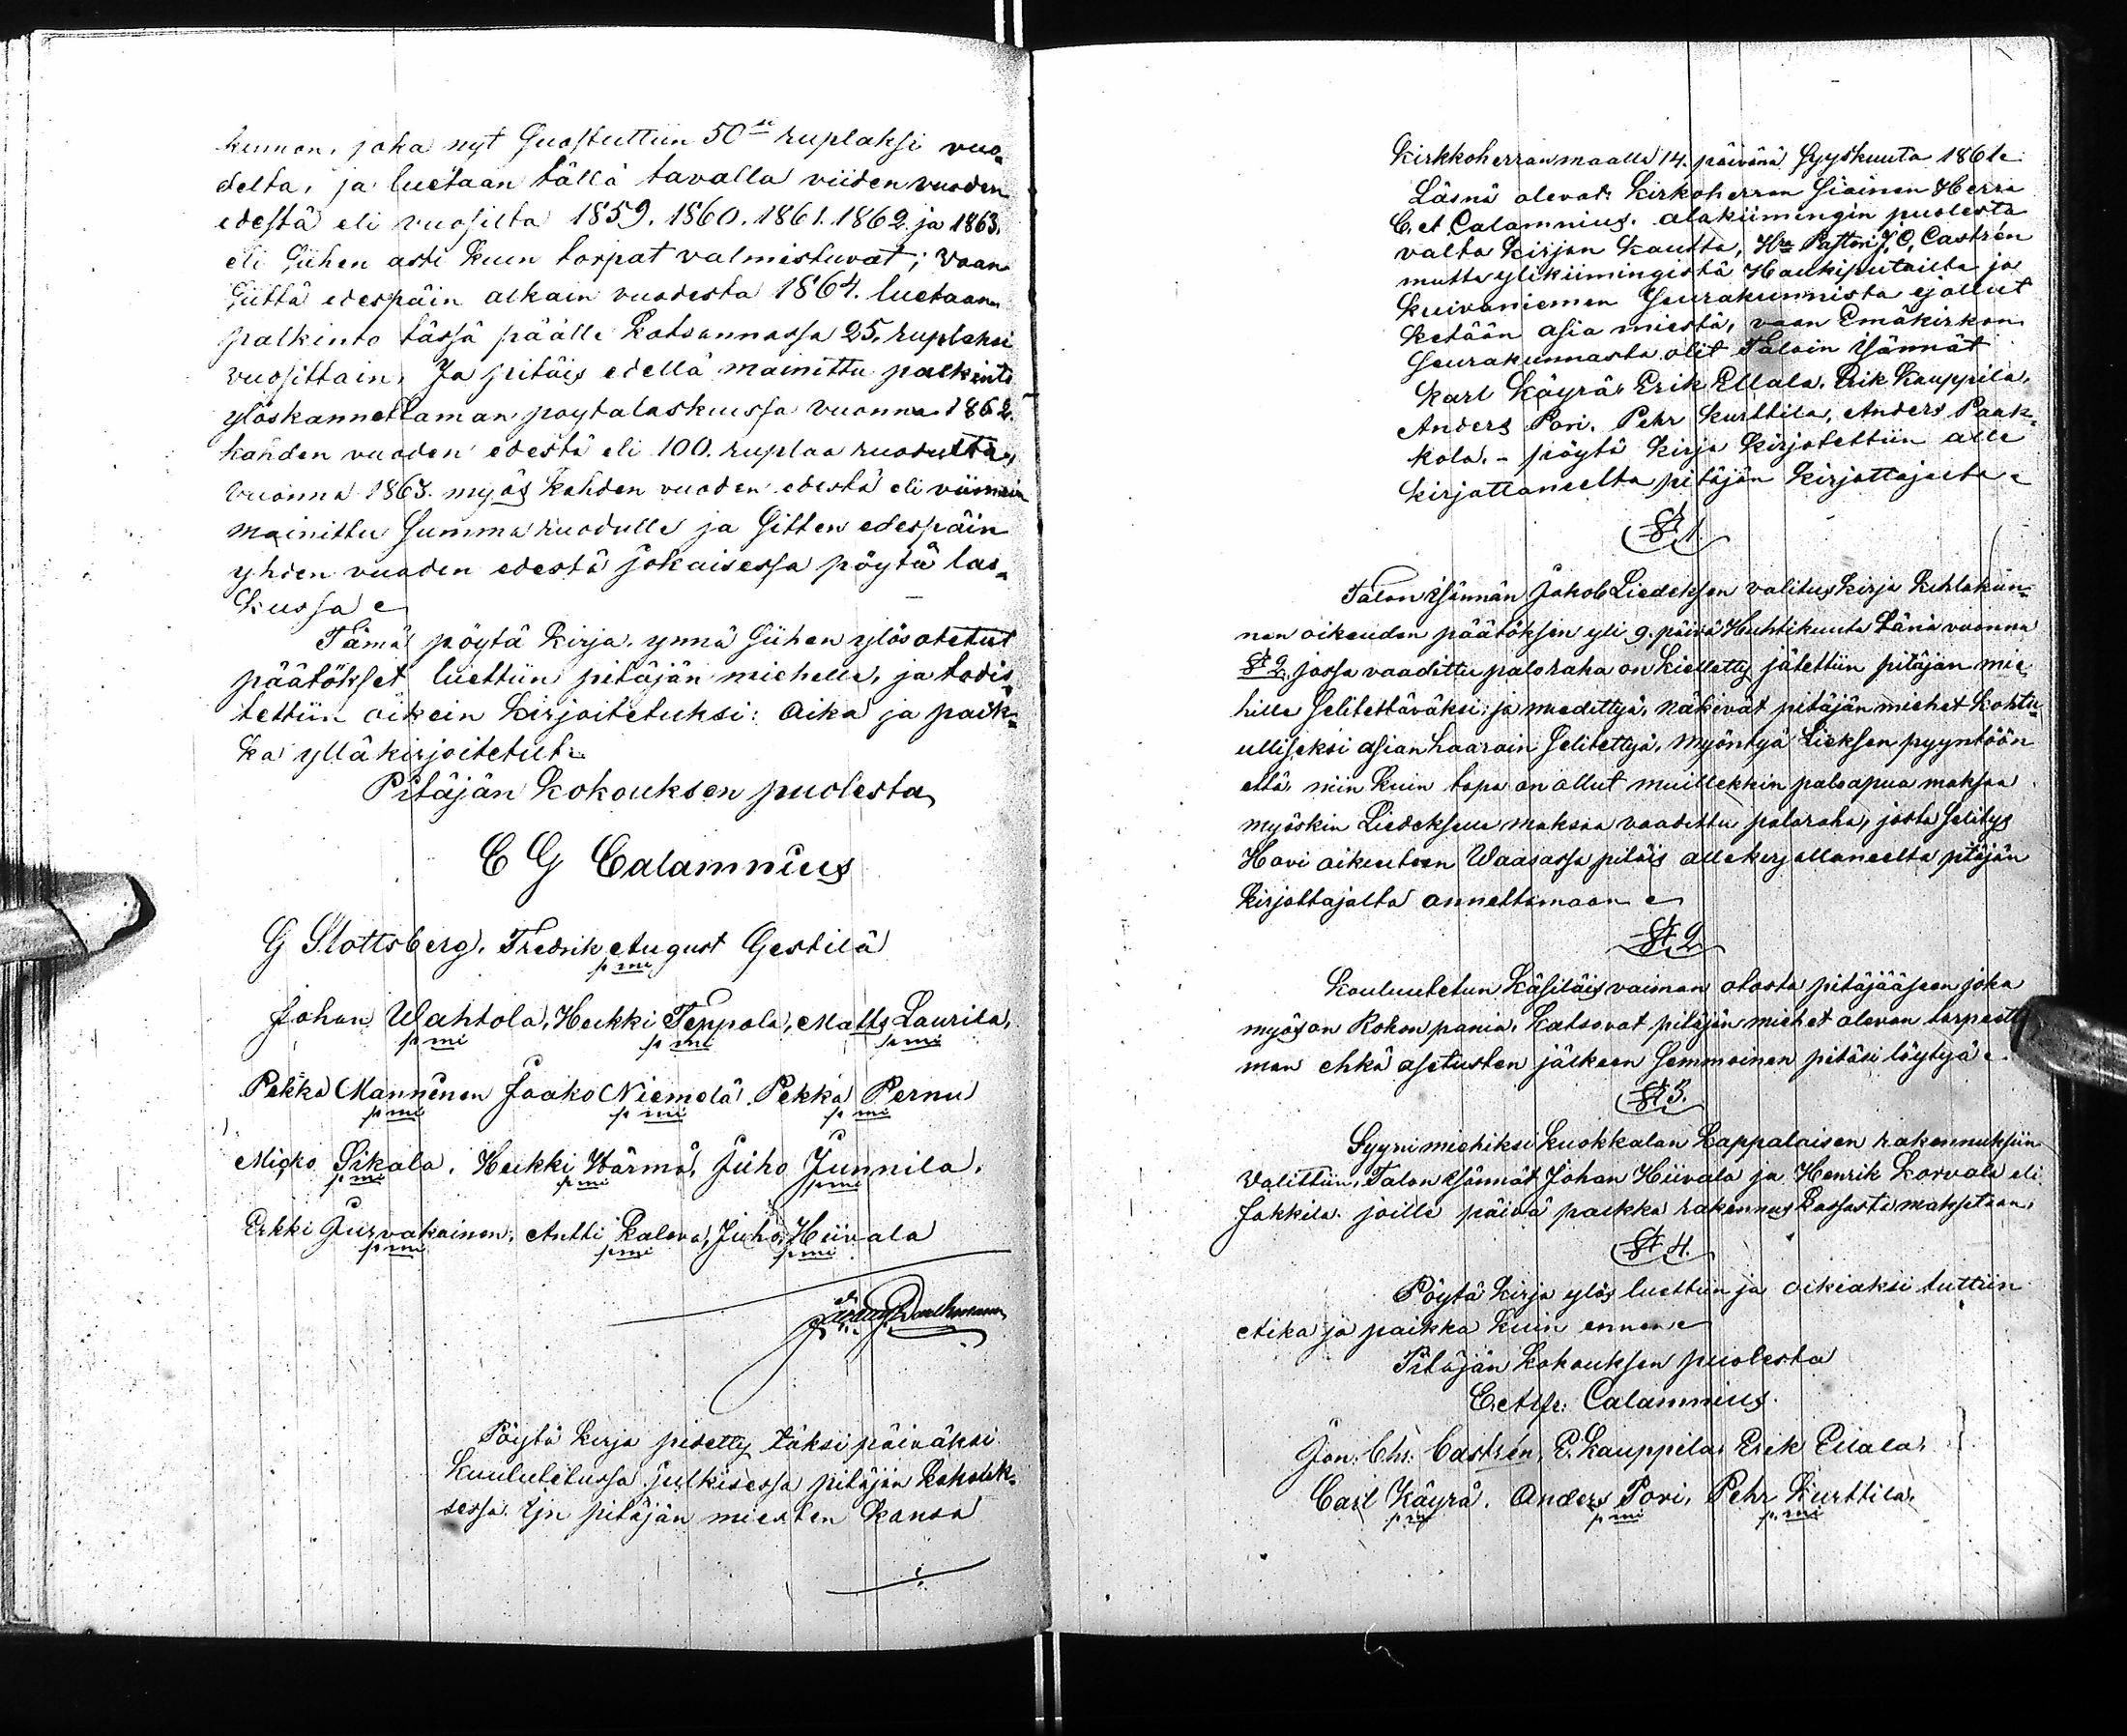 kunnon, joka nyt Suostuttiin 50 ruplaksi vuo-
delta, ja luetaan tällä tavalla viiden vuoden
edestä eli vuosilta 1859. 1860. 1861. 1862 ja 1863.
eli Siihen asti kuin torpat valmistuvat; vaan
Siittä edespäin alkain vuodesta 1864. luetaan
palkinto tässä päälle katsannossa 25. ruplaksi
vuosittain. Ja pitäis edellä mainittu palkinto
ylöskannettaman poytalaskussa vuonna 1862.
kahden vuoden edestä eli 100. ruplaa ruodulta,
vuonna 1863. myös kahden vuoden edestä eli viimein
mainittu Summa ruodulle ja Sitten edespäin
yhden vuoden edestä jokaisessa pöytä las-
kussa
Tämä pöytä kirja, ynnä Siihen ylösotetut
päätökset luettiin pitäjän miehelle, ja todis-
tettiin oikein kirjoitetuksi: Aika ja paik-
ka ylläkirjoitetut
Pitäjän kokouksen puolesta
C G Calamnius
G Slottsberg. Fredrik August Gestilä
p m
Johan Wahtola, Heikki Teppola, Matts Laurila,
p m p m p m
Pekka Manninen Jaako Niemelä. Pekka Pernu
p m p m p m
Micko Sikala. Heikki Härmä, Juho Junnila.
p m p m p m
Erkki Jurvakainen, Antti Kaleva, Juho Hiivala
p m p m p m
Pöytä kirja pidetty täksi päiväksi
kuulutetussa julkisessa pitäjän kokouk-
sessa Ijn pitäjän miesten kansa
Kirkkoherran maalla 14. päivänä Syyskuuta 1861
Läsnä olevat: Kirkoherran Siainen Herra
C. A. Calamnius. alakiimingin puolesta
valta kirjan kautta, Hra Pastori J. C. Castrén
mutta ylikiimingistä Haukiputailta ja
Kuivaniemen Seurakunnista ej ollut
ketään asia miestä, vaan Emäkirkon
Seurakunnasta olit Taloin Isännät
Karl Käyrä, Erik Ellala, Erik Kauppila,
Anders Pori, Pehr Kurttila, Anders Paak-
kola. - pöytä kirja kirjotettiin alle
kirjottaneelta pitäjän kirjottajalta
§ 1.
Talon Isännän Jakob Liedeksen valitus kirja kihlakun-
nan oikeuden päätöksen yli 9. päivä Huhtikuuta tänä vuonna
§ 2. jossa vaadittu palo raha on kielletty jätettiin pitäjän mie-
hille Selitettäväksi; ja miedittyä, näkevät pitäjän miehet kohtu-
ulliseksi asian haarain Selitettyä, myöntyä Lieksen pyyntöön
että, niin kuin tapa on ollut muillekkin paloapua maksaa
myöskin Liedekselle maksaa vaadittu paloraha, josta Selitys
Hovi oikeuteen Waasassa pitäis allekirjottaneelta pitäjän
kirjottajalta annettamaan
§ 2
Kouluutetun Käsiläis vaiman otosta pitäjääseen joka
myös on Rokon pania, katsovat pitäjän miehet olevan tarpeetto
man ehkä asetusten jälkeen Semmoinen pitäsi löytyä
§ 3.
Syyni miehiksi Kuokkalan Lappalaisen rakennuksiin
Valittiin, Talon Isännät Johan Hiivala ja Henrik Korvala eli
Jokkila. joille päivä palkka rakennus kassasta maksetaan.
§ 4.
Pöytä kirja ylös luettiin ja oikiaksi tuttiin
Aika ja paikka kuin ennen
Pitäjän kokouksen puolesta
C. Alfr: Calamnius.
Jon: Chr: Castrén, E. Kauppila, Erik Ellala,
Carl Käyrä. Anders Pori. Pehr Kurttila.
p m p m p m